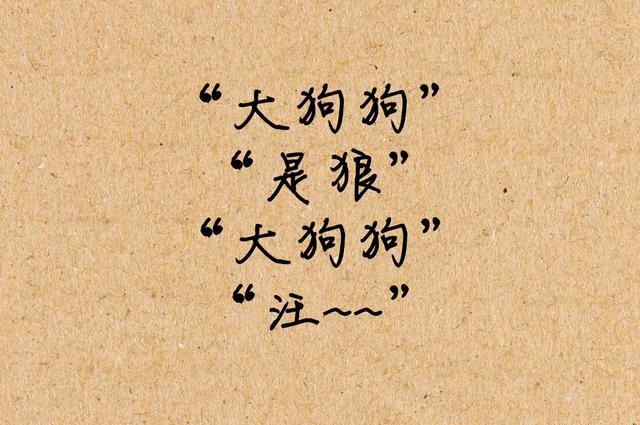 “大狗狗”
“是狼”
“大狗狗”
“汪~~”